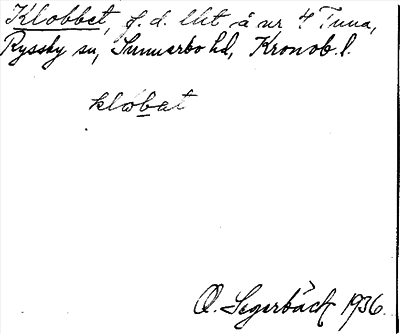 Klobbet, f. d. lht å nr 4 Tuna,
Ryssby sn, Sunnerbo hd, Kronob. l.
klåbat
O. Segerbäck 1936.